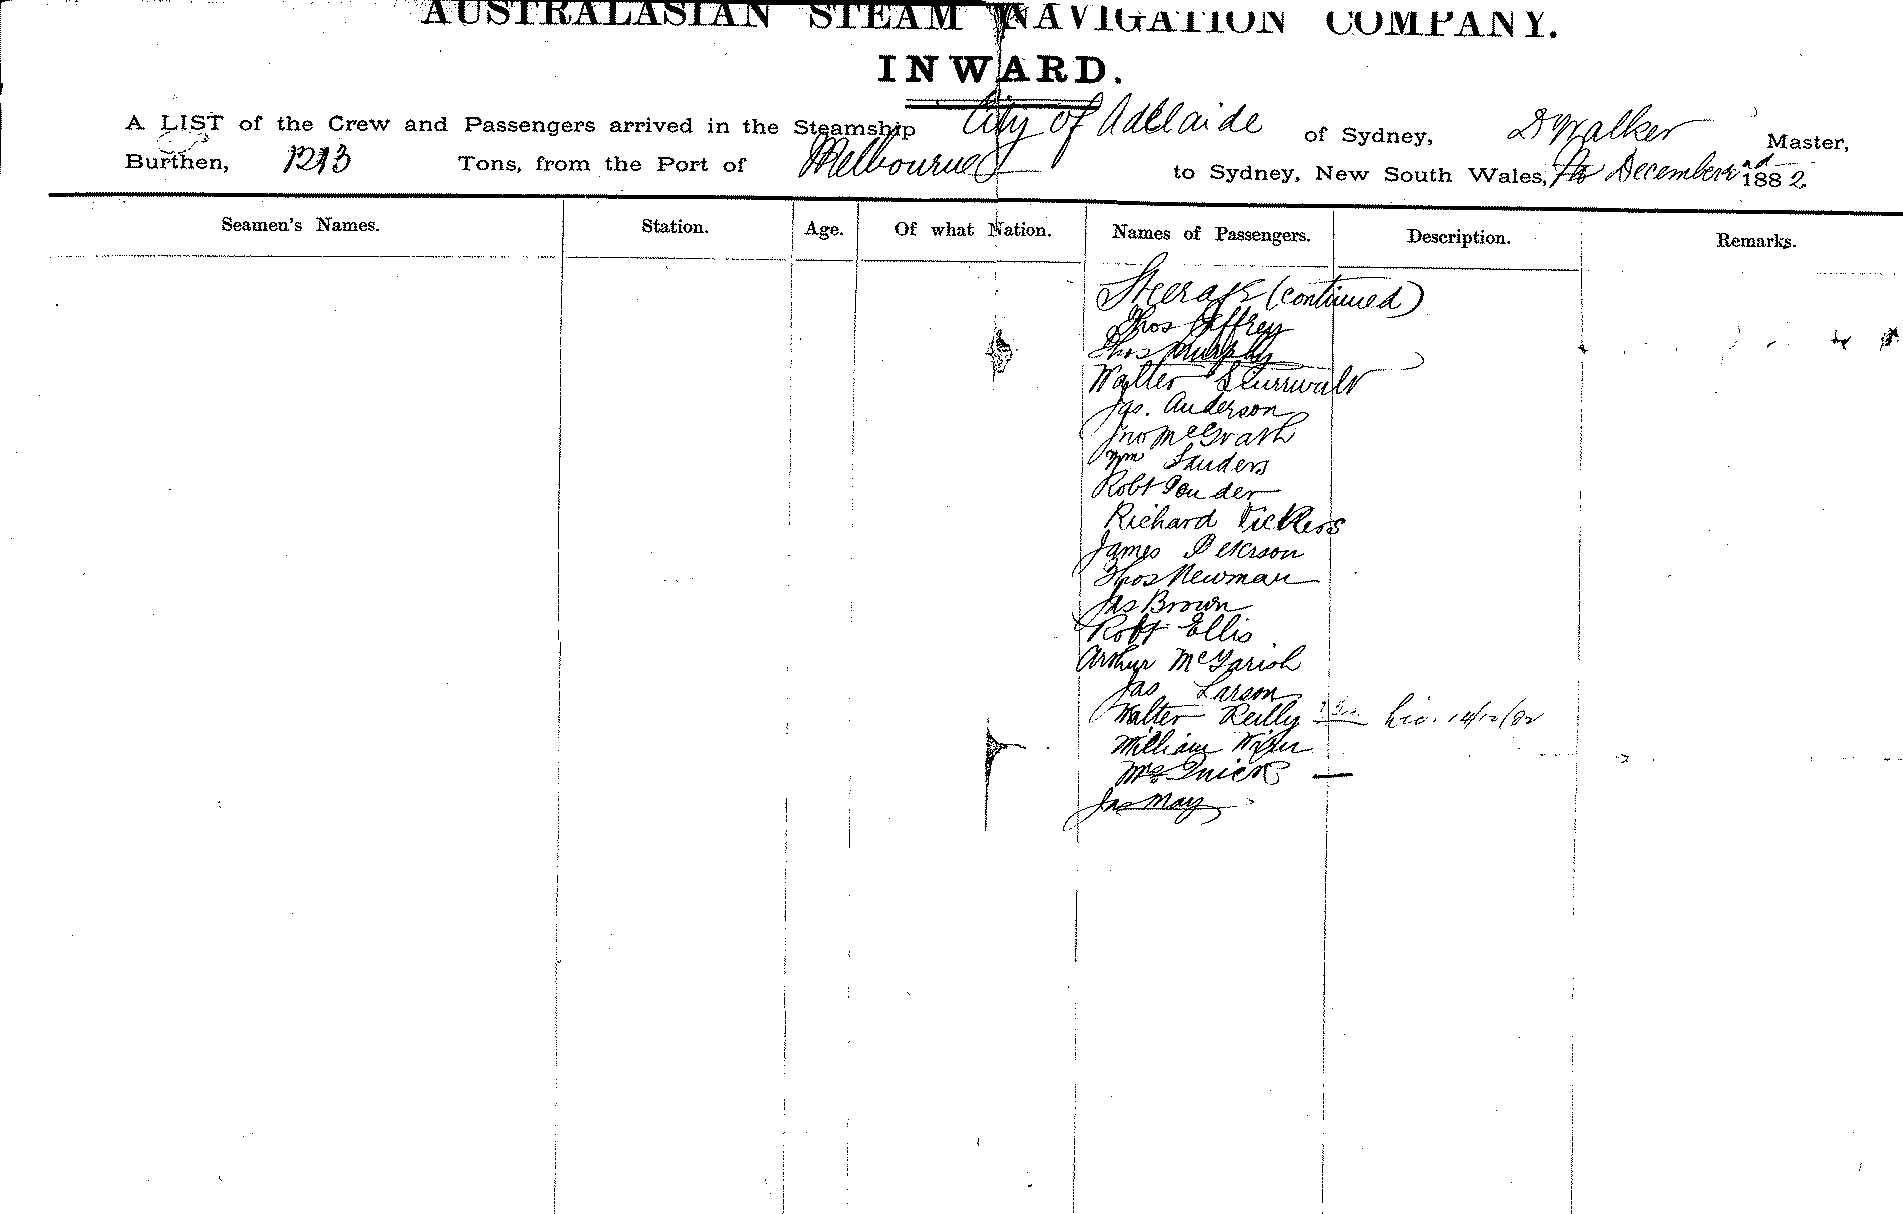 AUSTRALASIAN STEAM NAVIGATION COMPANY.
INWARD.
A LIST of the Crew and Passengers arrived in the Steamship City of Adelaide of Sydney, D Walker Master,
Burthen, 1213 Tons, from the Port of Melbourne to Sydney, New South Wales, December 1882
Seamen's Names. Station. Age. Of what Nation. Names of Passengers. Description. Remarks.
Steerage (continued)
Thos Jeffrey
Thos Murphy
Walter
Jas. Anderson
Jno McGrath
Wm Sanders
Robt
Richard Vickers
James Peterson
Thos Newman
Jas Brown
Robt Ellis
Arthur
Jas Larson
Walter Reilly
William
Mrs Quick —
Jas May